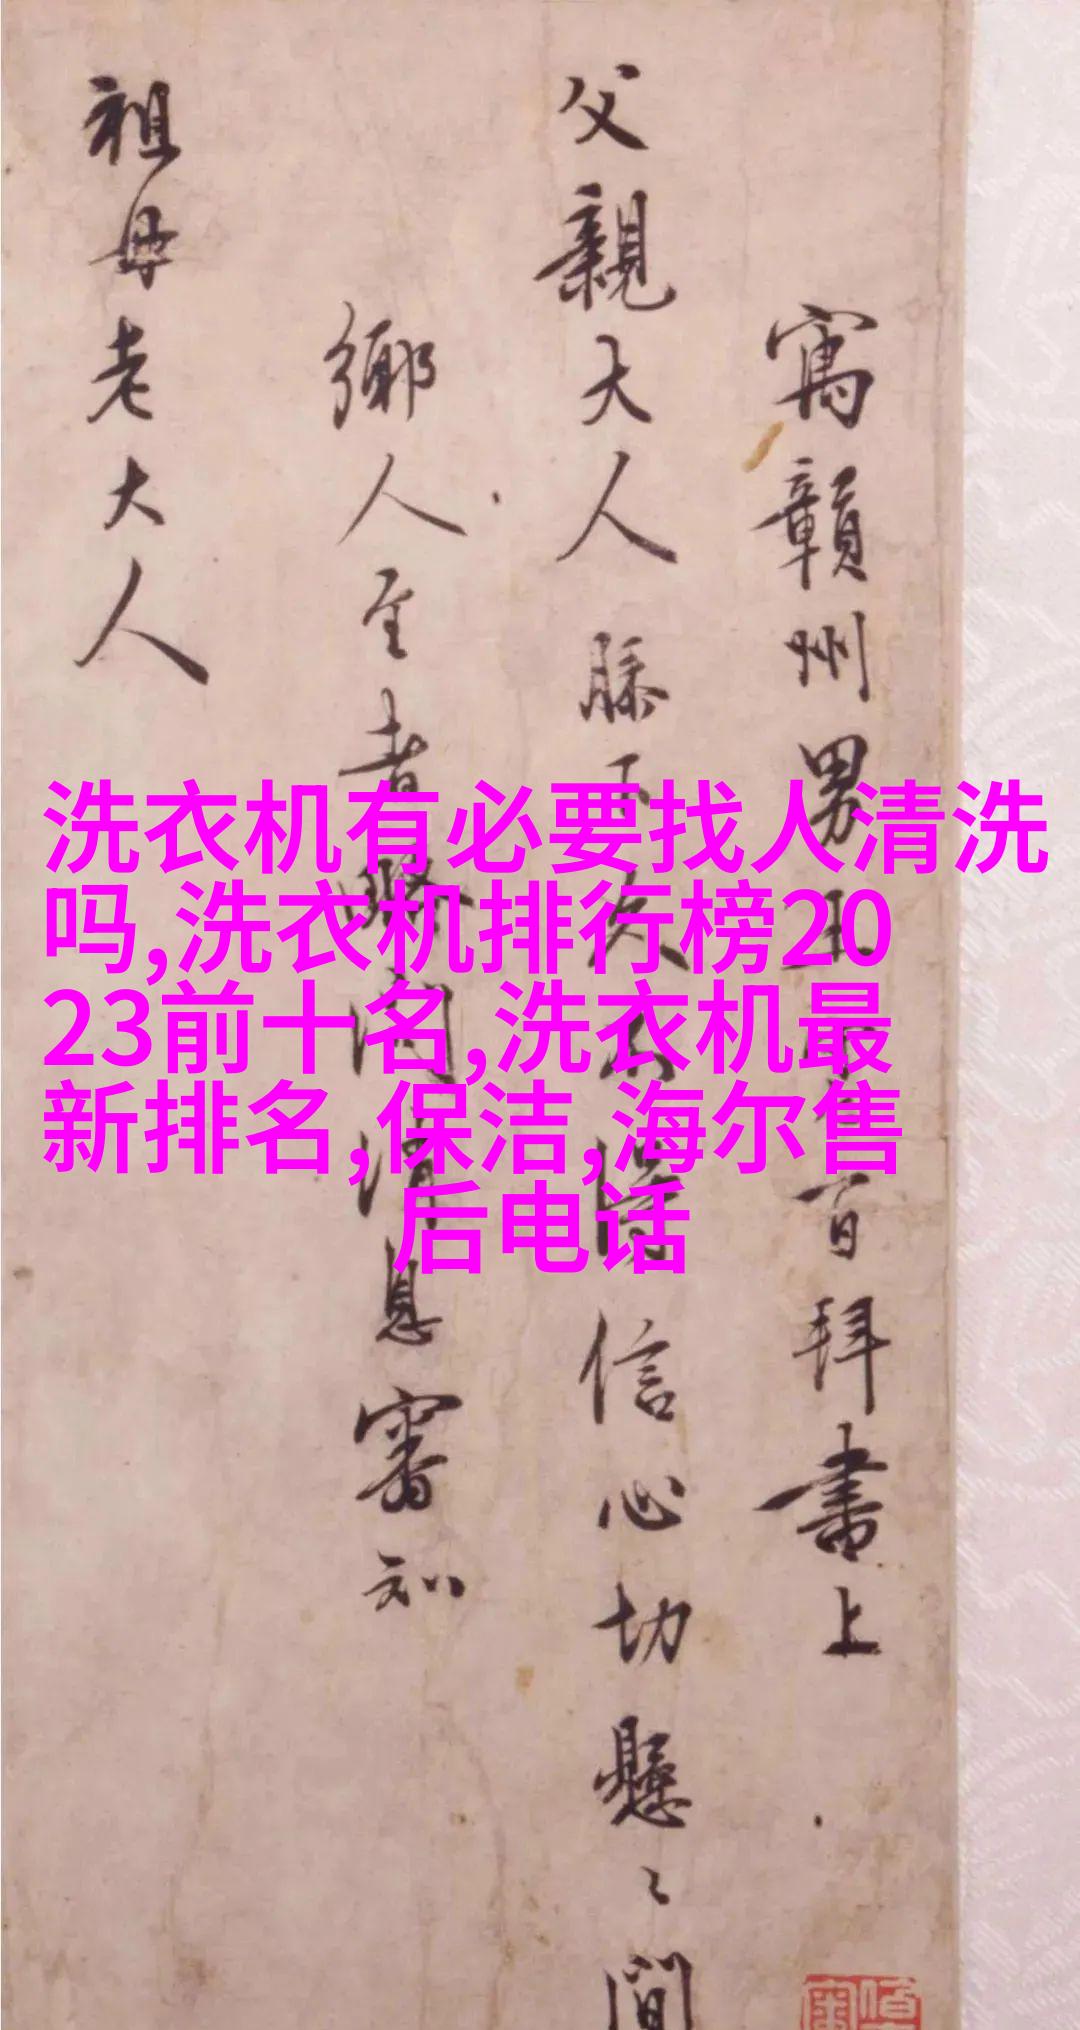 寓贛州男王守仁百拜書上
父親大人膝下久不得信心切懸〻間
鄉人至者略問消息審知
祖母老大人
洗衣机有必要找人清洗
吗,洗衣机排行榜20
23前十名,洗衣机最
新排名,保洁,海尔售
后电话